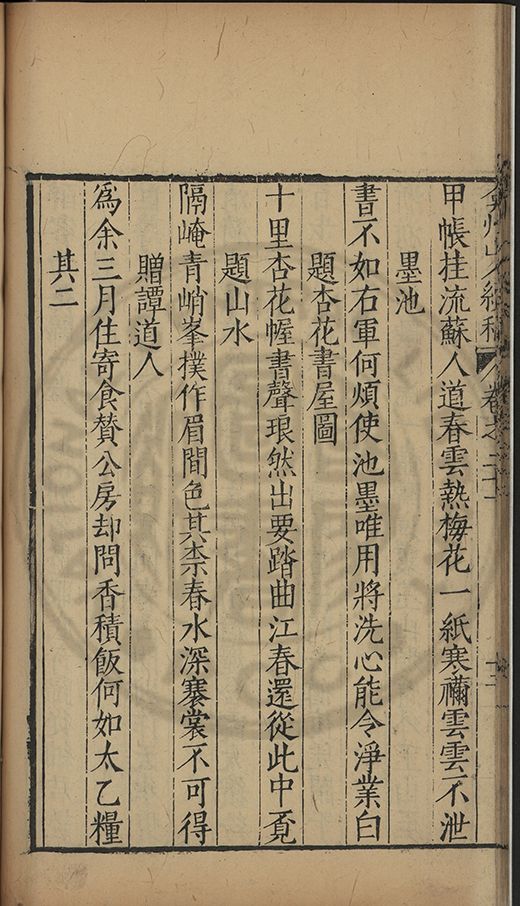 甲帳挂流蘇人道春雲熱梅花一紙寒禰雲雲不泄
墨池
書不如右軍何煩使池墨唯用將洗心能令淨業白
題杏花書屋圖
十里杏花幄書聲琅然出要踏曲江春還從此中覓
題山水
隔崦青峭峯撲作眉間色其柰春水深褰裳不可得
贈譚道人
為余三月住寄食贊公房却問香積飯何如太乙糧
其二